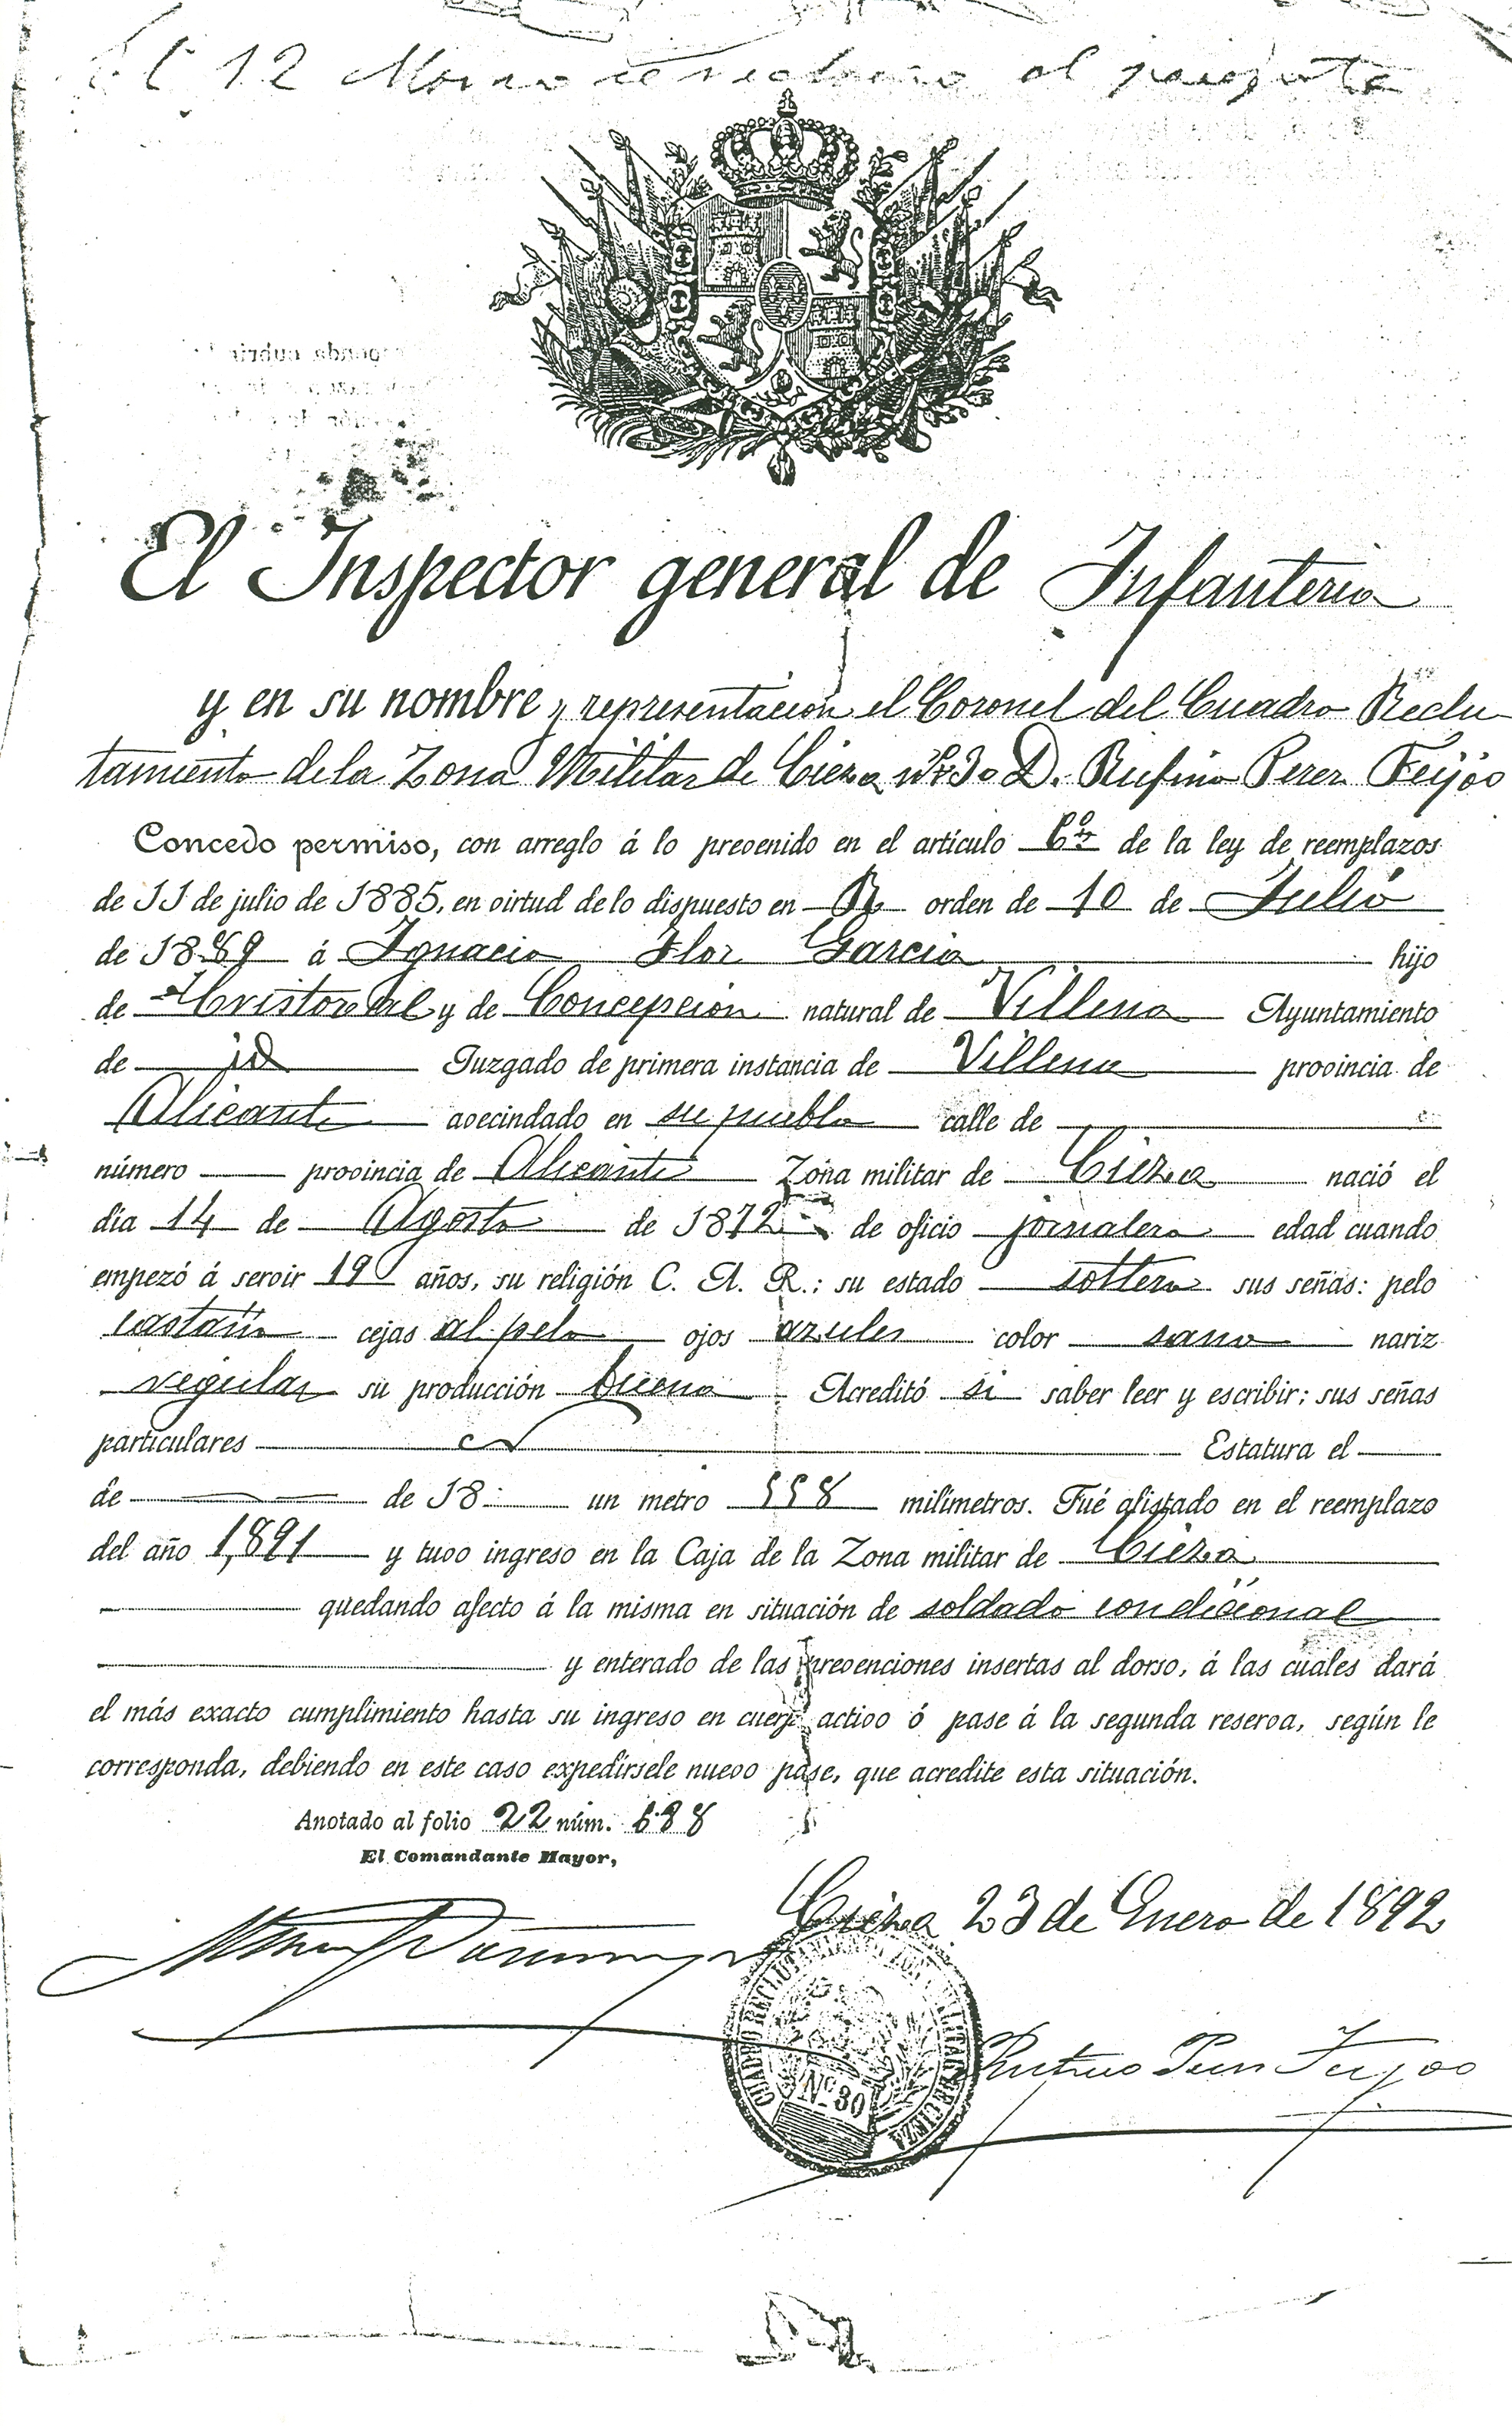 El 12 Marzo se el
El Inspector general de Infanteria
y en su nombre y representacion el Coronel del Cuadro Reclu-
tamiento de la Zona Militar de Cieza nº 30 D. Rufino Perez Feijoo
Concedo permiso, con arreglo á lo prevenido en el artículo 6º de la ley de reemplazos
de 11 de julio de 1885, en virtud de lo dispuesto en R. orden de 10 de Julio
de 1889 á Ignacio Flor Garcia hijo
de Cristoval y de Concepcion natural de Villena Ayuntamiento
de id Juzgado de primera instancia de Villena provincia de
Alicante avecindado en su pueblo calle de
número provincia de Alicante Zona militar de Cieza nació el
día 14 de Agosto de 1872 de oficio jornalero edad cuando
empezó á servir 19 años, su religión C. A. R.: su estado soltero sus señas: pelo
castaño cejas al pelo ojos azules color sano nariz
regular su producción buena Acreditó si saber leer y escribir; sus señas
particulares Estatura el
de de 18 un metro 558 milímetros. Fué alistado en el reemplazo
del año 1,891 y tuvo ingreso en la Caja de la Zona militar de Cieza
quedando afecto á la misma en situación de soldado condicional
y enterado de las prevenciones insertas al dorso, á las cuales dará
el más exacto cumplimiento hasta su ingreso en cuerpo activo ó pase á la segunda reserva, según le
corresponda, debiendo en este caso expedírsele nuevo pase, que acredite esta situación.
Anotado al folio 22 núm. 688
El Comandante Mayor,
Cieza 23 de Enero de 1892
CUADRO RECLUTAMIENTO ZONA MILITAR DE CIEZA
Nº 30
Rufino Perez Feijoo